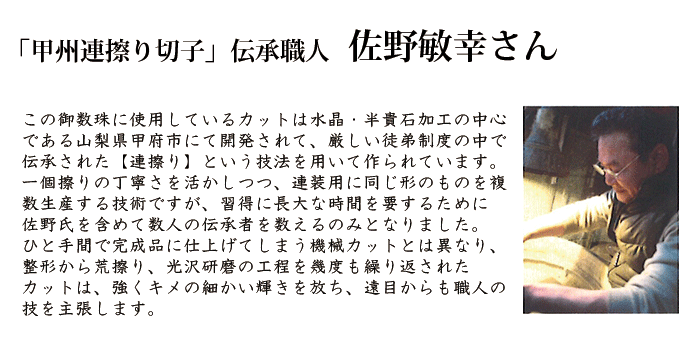 「甲州連擦り切子」伝承職人 佐野敏幸さん
この御数珠に使用しているカットは水晶・半貴石加工の中心
である山梨県甲府市にて開発されて、厳しい徒弟制度の中で
伝承された【連擦り】という技法を用いて作られています。
一個擦りの丁寧さを活かしつつ、連装用に同じ形のものを複
数生産する技術ですが、習得に長大な時間を要するために
佐野氏を含めて数人の伝承者を数えるのみとなりました。
ひと手間で完成品に仕上げてしまう機械カットとは異なり、
整形から荒擦り、光沢研磨の工程を幾度も繰り返された
カットは、強くキメの細かい輝きを放ち、遠目からも職人の
技を主張します。